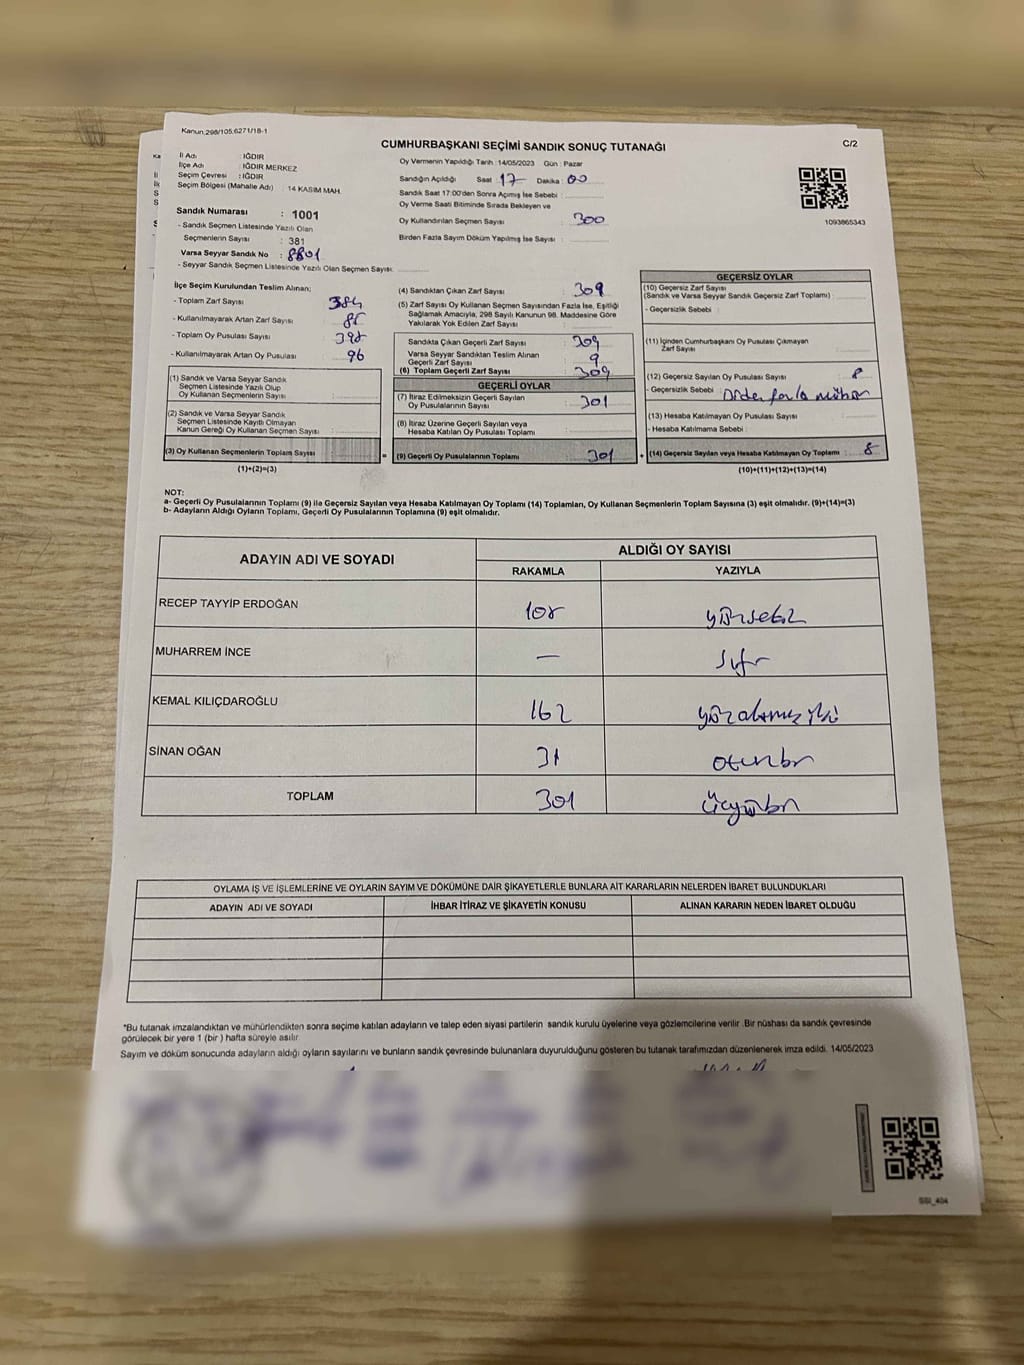 Kanun.298/105.6271/18-1
CUMHURBAŞKANI SEÇİMİ SANDIK SONUÇ TUTANAĞI
C/2
İl Adı : IĞDIR
İlçe Adı : IĞDIR MERKEZ
Seçim Çevresi : IĞDIR
Seçim Bölgesi (Mahalle Adı) : 14 KASIM MAH.
Sandık Numarası : 1001
- Sandık Seçmen Listesinde Yazılı Olan
Seçmenlerin Sayısı : 381
Varsa Seyyar Sandık No : 8801
- Seyyar Sandık Seçmen Listesinde Yazılı Olan Seçmen Sayısı:
Oy Vermenin Yapıldığı Tarih :14/05/2023 Gün : Pazar
Sandığın Açıldığı Saat : 17 Dakika : 00
Sandık Saat 17:00'den Sonra Açımış İse Sebebi :
Oy Verme Saati Bitiminde Sırada Bekleyen ve
Oy Kullandırılan Seçmen Sayısı : 300
Birden Fazla Sayım Döküm Yapılmış İse Sayısı :
1093865343
İlçe Seçim Kurulundan Teslim Alınan;
- Toplam Zarf Sayısı : 384
- Kullanılmayarak Artan Zarf Sayısı :
- Toplam Oy Pusulası Sayısı :
- Kullanılmayarak Artan Oy Pusulası : 96
(1) Sandık ve Varsa Seyyar Sandık
Seçmen Listesinde Yazılı Olup
Oy Kullanan Seçmenlerin Sayısı :
(2) Sandık ve Varsa Seyyar Sandık
Seçmen Listesinde Kayıtlı Olmayan
Kanun Gereği Oy Kullanan Seçmen Sayısı :
(3) Oy Kullanan Seçmenlerin Toplam Sayısı :
(1)+(2)=(3)
(4) Sandıktan Çıkan Zarf Sayısı : 309
(5) Zarf Sayısı Oy Kullanan Seçmen Sayısından Fazla İse, Eşitliği
Sağlamak Amacıyla, 298 Sayılı Kanunun 98. Maddesine Göre
Yakılarak Yok Edilen Zarf Sayısı :
Sandıkta Çıkan Geçerli Zarf Sayısı : 309
Varsa Seyyar Sandıktan Teslim Alınan
Geçerli Zarf Sayısı : 9
(6) Toplam Geçerli Zarf Sayısı : 309
GEÇERLİ OYLAR
(7) İtiraz Edilmeksizin Geçerli Sayılan
Oy Pusulalarının Sayısı : 301
(8) İtiraz Üzerine Geçerli Sayılan veya
Hesaba Katılan Oy Pusulası Toplamı :
(9) Geçerli Oy Pusulalarının Toplamı : 301
GEÇERSİZ OYLAR
(10) Geçersiz Zarf Sayısı
(Sandık ve Varsa Seyyar Sandık Geçersiz Zarf Toplamı) :
- Geçersizlik Sebebi :
(11) İçinden Cumhurbaşkanı Oy Pusulası Çıkmayan
Zarf Sayısı :
(12) Geçersiz Sayılan Oy Pusulası Sayısı : 8
- Geçersizlik Sebebi : fazla mühür
(13) Hesaba Katılmayan Oy Pusulası Sayısı :
- Hesaba Katılmama Sebebi :
(14) Geçersiz Sayılan veya Hesaba Katılmayan Oy Toplamı : 8
(10)+(11)+(12)+(13)=(14)
NOT:
a- Geçerli Oy Pusulalarının Toplamı (9) ile Geçersiz Sayılan veya Hesaba Katılmayan Oy Toplamı (14) Toplamları, Oy Kullanan Seçmenlerin Toplam Sayısına (3) eşit olmalıdır. (9)+(14)=(3)
b- Adayların Aldığı Oyların Toplamı, Geçerli Oy Pusulalarının Toplamına (9) eşit olmalıdır.
ADAYIN ADI VE SOYADI
ALDIĞI OY SAYISI
RAKAMLA YAZIYLA
RECEP TAYYİP ERDOĞAN 108 yüzsekiz
MUHARREM İNCE — sıfır
KEMAL KILIÇDAROĞLU 162 yüzaltmışiki
SİNAN OĞAN 31 otuzbir
TOPLAM 301 üçyüzbir
OYLAMA İŞ VE İŞLEMLERİNE VE OYLARIN SAYIM VE DÖKÜMÜNE DAİR ŞİKAYETLERLE BUNLARA AİT KARARLARIN NELERDEN İBARET BULUNDUKLARI
ADAYIN ADI VE SOYADI İHBAR İTİRAZ VE ŞİKAYETİN KONUSU ALINAN KARARIN NEDEN İBARET OLDUĞU
*Bu tutanak imzalandıktan ve mühürlendikten sonra seçime katılan adayların ve talep eden siyasi partilerin sandık kurulu üyelerine veya gözlemcilerine verilir. Bir nüshası da sandık çevresinde
görülecek bir yere 1 (bir ) hafta süreyle asılır.
Sayım ve döküm sonucunda adayların aldığı oyların sayılarını ve bunların sandık çevresinde bulunanlara duyurulduğunu gösteren bu tutanak tarafımızdan düzenlenerek imza edildi. 14/05/2023
SSI_404